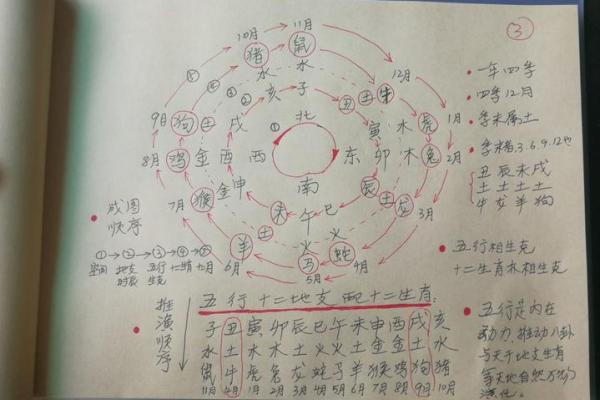 ③
10月 11月
猪 鼠
水 水
12月
亥 子
丑 土 牛
⑤ ④ ③ ②
9月 狗 土 戌
① 北
寅 木 虎 1月
8月 鸡 金 酉 西
东 卯 木 兔 2月
7月 猴 金 申
南
辰 土 龙 3月
未 午 巳
土 火 火
6月 羊 马 蛇 4月
5月
• 一年四季
• 四季12月
• 季末属土
• 季末指3.6.9.12也
丑 辰 未 戌
土 土 土 土
牛 龙 羊 狗
• 成图
顺序
①→②→③→④→⑤
空间 地支 五行 十二肖 十二月
时辰 生克
• 五行相生克
十二生肖亦相生克
推演顺序
五行十二地支配十二生肖:
子 丑 寅 卯 辰 巳 午 未 申 酉 戌 亥
水 土 木 木 土 火 火 土 金 金 土 水
鼠 牛 虎 兔 龙 蛇 马 羊 猴 鸡 狗 猪
11月 12月 1月 2月 3月 4月 5月 6月 7月 8月 9月 10月
• 五行是内在
动力,推动八卦
与天干地支生肖
等天地自然万物
演化。